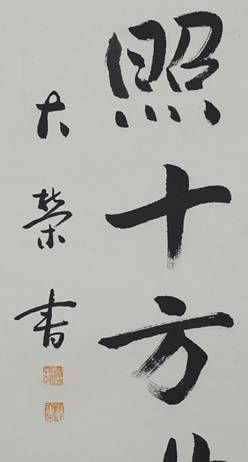 照十方
大榮書